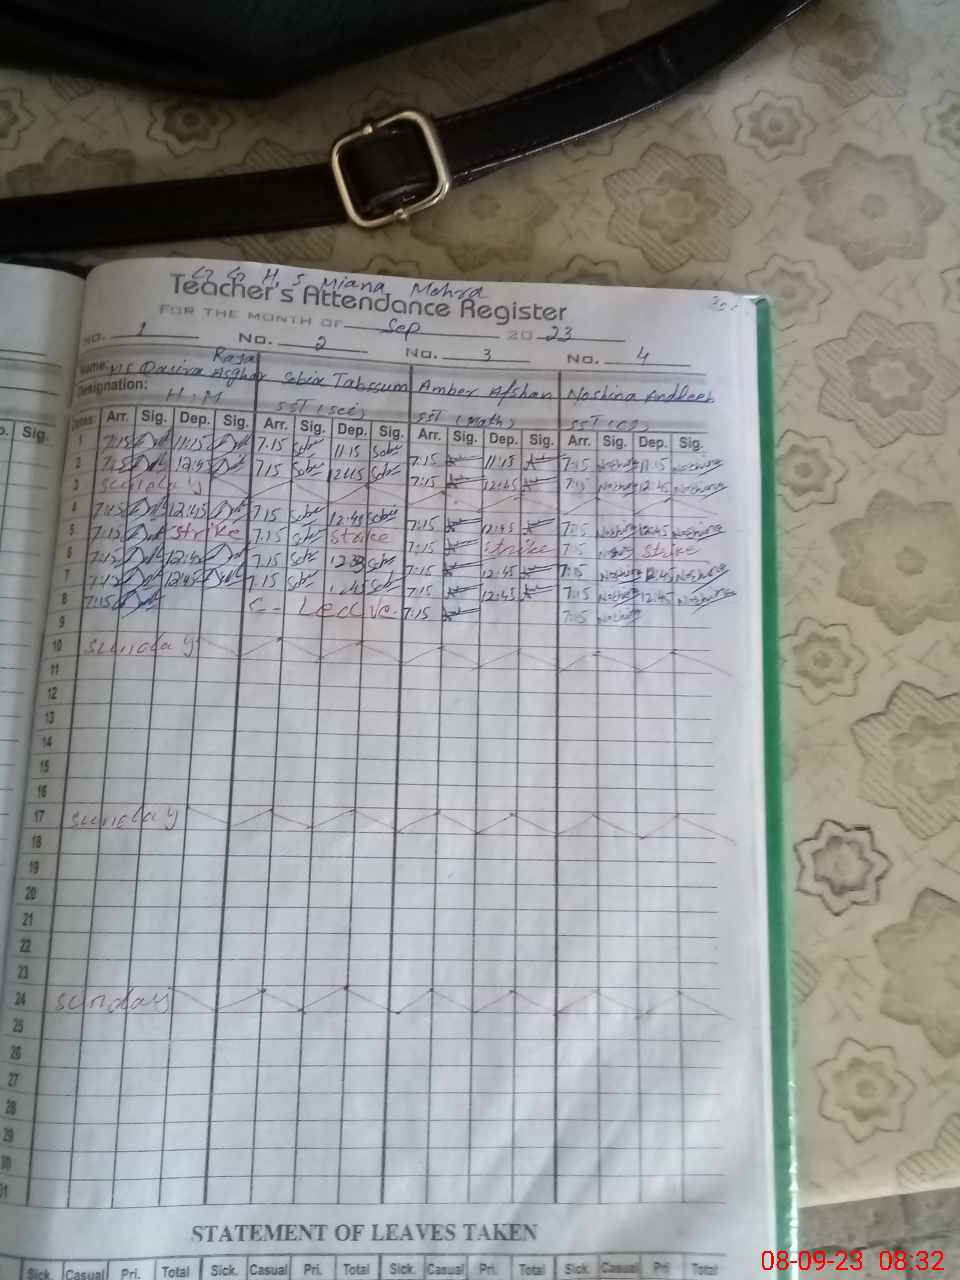 G G H. S Miana Mohra
Teacher's Attendance Register
FOR THE MONTH OF Sep 2023
No. 1 No. 2 No. 3 No. 4
Raja
Name: Asghar Sobia Tabssum Amber Afshan Noshina Andleeb
Designation: H.M SST (sci) SST (math) SST (CS)
Dates: Arr. Sig. Dep. Sig. Arr. Sig. Dep. Sig. Arr. Sig. Dep. Sig. Arr. Sig. Dep. Sig.
1 7:15 11:15 7:15 Sobi 11:15 Sobi 7:15 11:15 7:15 Noshina 11:15 Noshina
2 7:15 12:45 7:15 Sobi 12:45 Sobi 7:15 12:45 7:15 Noshina 12:45 Noshina
3 sunday
4 7:15 12:45 7:15 Sobi 12:45 Sobi 7:15 12:45 7:15 Noshina 12:45 Noshina
5 7:15 strike 7:15 Sobi strike 7:15 strike 7:15 strike
6 7:15 12:45 7:15 Sobi Sobi 7:15 12:45 7:15 Noshina 12:45 Noshina
7 7:15 12:45 7:15 Sobi Sobi 7:15 12:45 7:15 Noshina 12:45 Noshina
8 7:15 C- Leave 7:15 7:15 Noshina
9
10 sunday
11
12
13
14
15
16
17 sunday
18
19
20
21
22
23
24 sunday
25
26
27
28
29
30
31
STATEMENT OF LEAVES TAKEN
Sick. Casual Pri. Total Sick. Casual Pri. Total Sick. Casual Pri. Total Sick. Casual Pri. Total
08-09-23 08:32